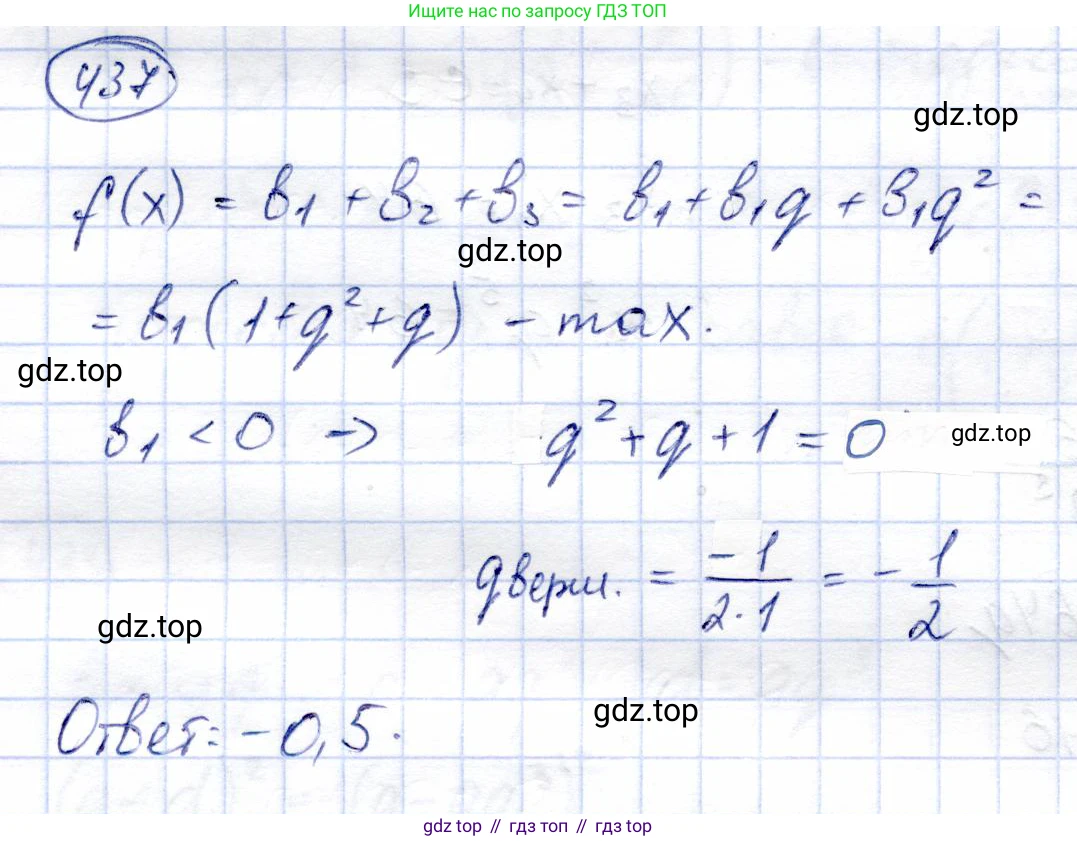 Ищите нас по запросу ГДЗ ТОП
437
gdz.top
f(x) = b₁ + b₂ + b₃ = b₁ + b₁q + b₁q² =
gdz.top
= b₁(1+q²+q) - max.
gdz.top
b₁ < 0 → q² + q + 1 = 0 gdz.top
qверш. = -1/2·1 = -1/2
gdz.top
gdz.top
Ответ: -0,5.
gdz top // гдз топ // gdz top